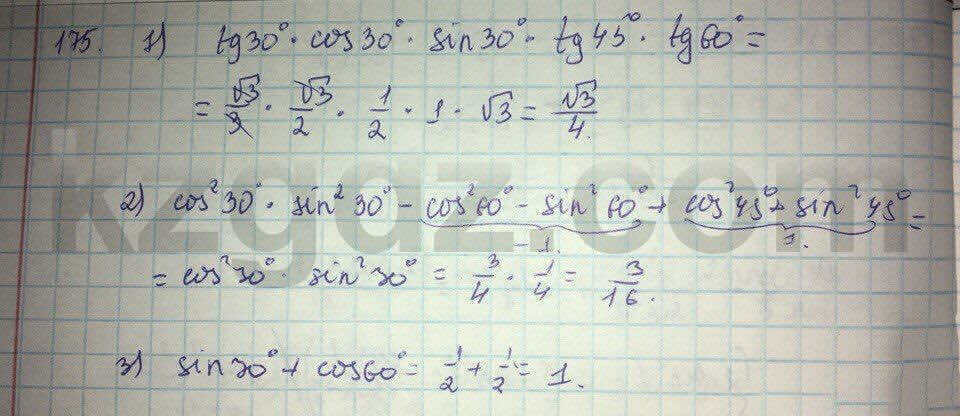 175. 1) tg30° · cos30° · sin30° · tg45° · tg60° =
= √3/3 · √3/2 · 1/2 · 1 · √3 = √3/4.
2) cos²30° · sin²30° - cos²60° - sin²60° + cos²45° + sin²45° =
-1. 1.
= cos²30° · sin²30° = 3/4 · 1/4 = 3/16.
3) sin30° + cos60° = 1/2 + 1/2 = 1.
kzgdz.com